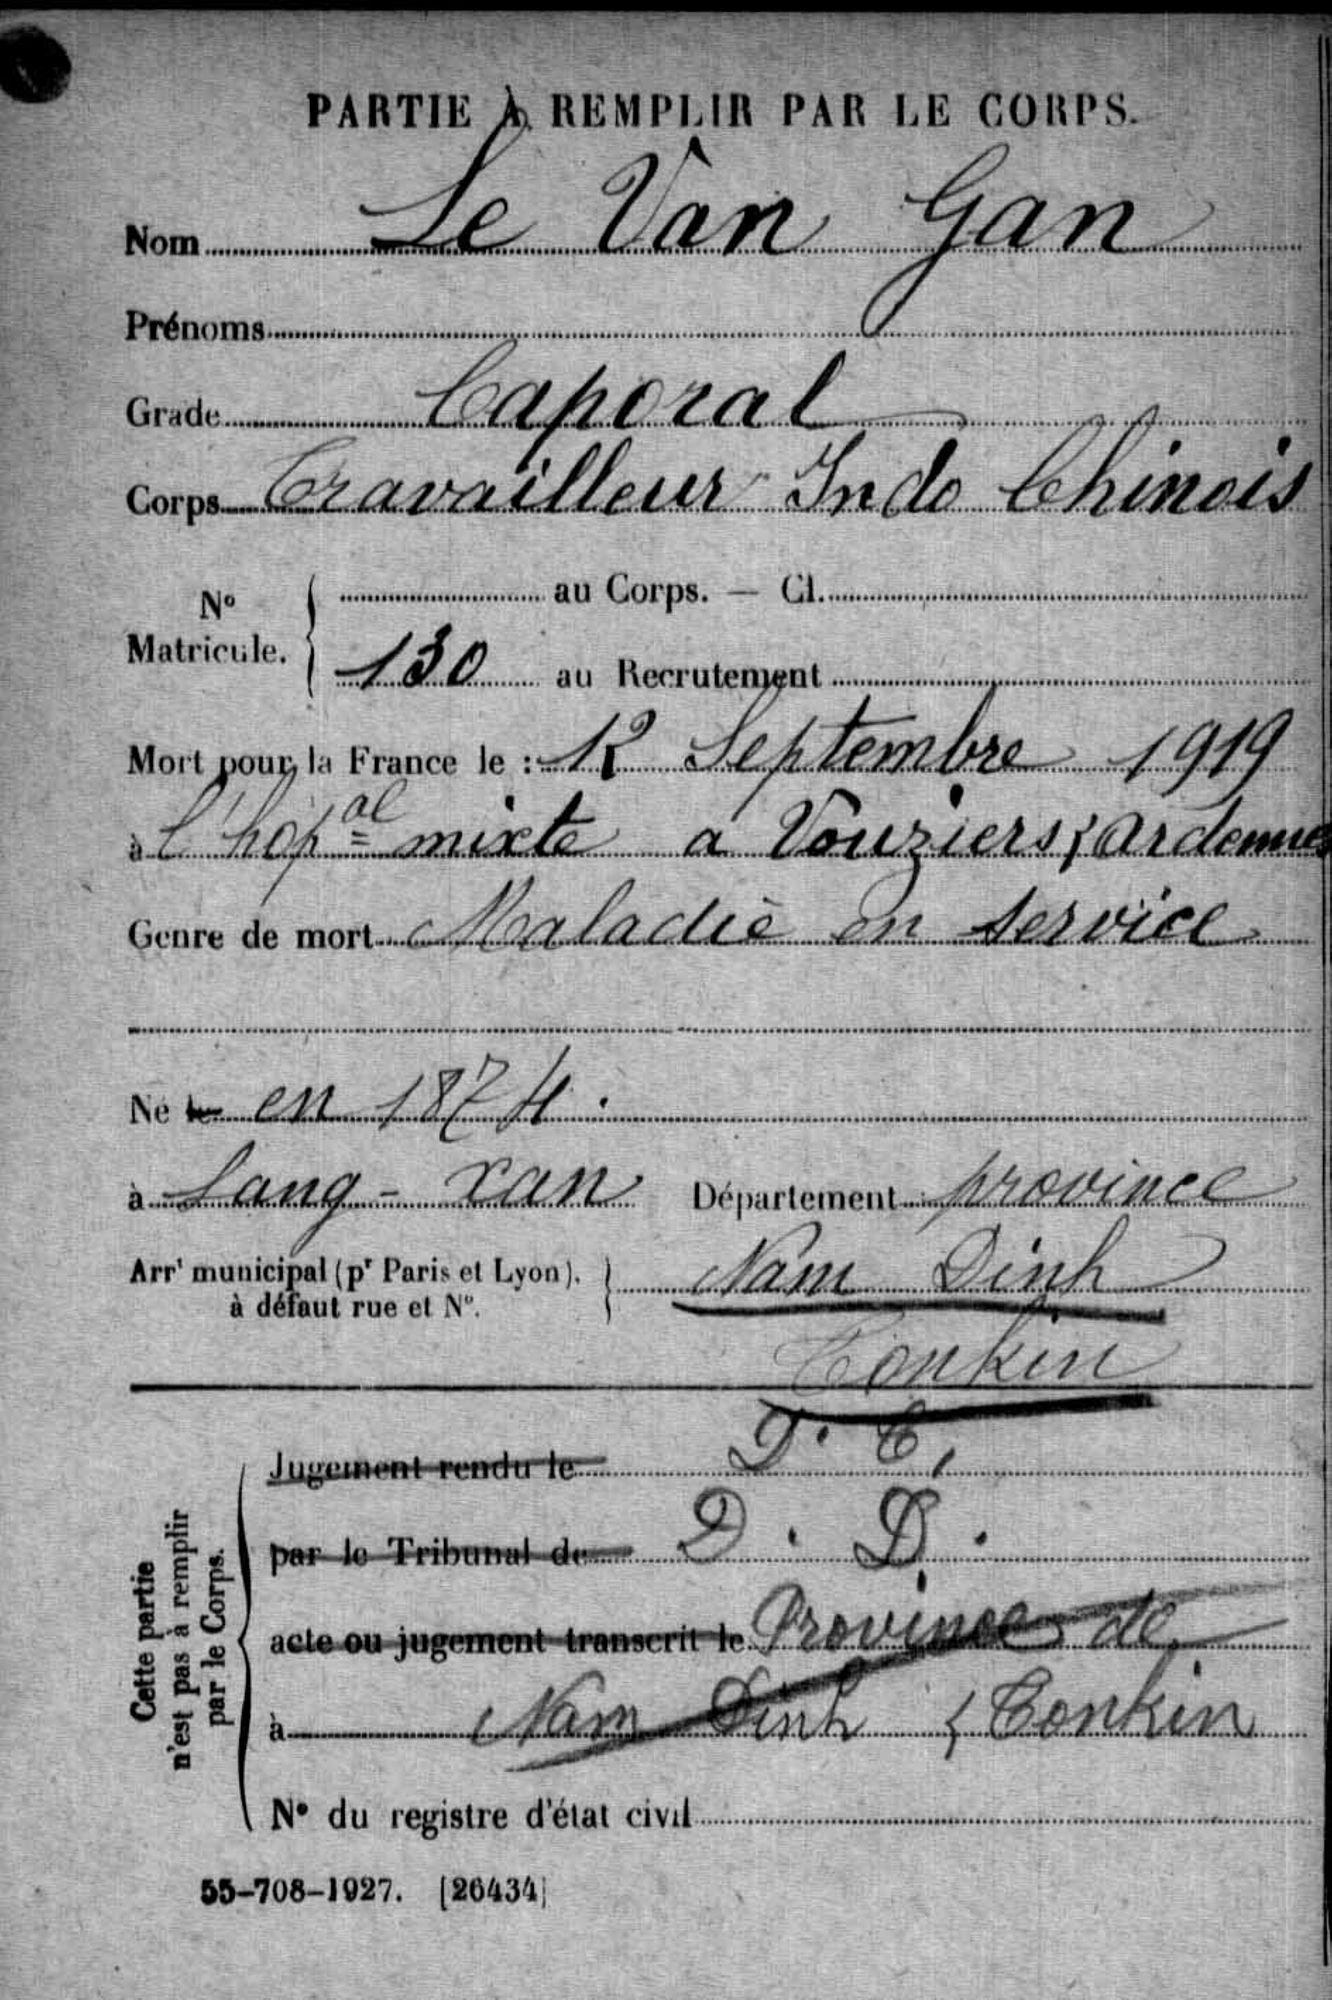 PARTIE À REMPLIR PAR LE CORPS.
Nom Le Van Gan
Prénoms
Grade Caporal
Corps Travailleur Indo Chinois
N° Matricule. au Corps. — Cl.
130 au Recrutement
Mort pour la France le : Septembre 1919
à l'hop al mixte a Vouziers, Ardennes
Genre de mort Maladie en service
Né le en 1874.
à Lang-xan Département province
Arrt municipal (pr Paris et Lyon), à défaut rue et N°. Nam Dinh
Tonkin
Jugement rendu le D. C,
par le Tribunal de D. D.
acte ou jugement transcrit le Province de
à Nam Dinh { Tonkin
N° du registre d'état civil
Cette partie
n'est pas à remplir
par le Corps.
55-708-1927. [26434]